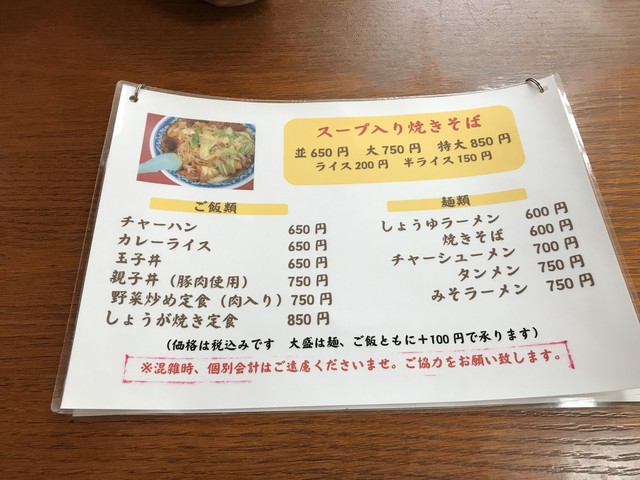 スープ入り焼きそば
並650円 大750円 特大850円
ライス200円 半ライス150円
ご飯類
チャーハン 650円
カレーライス 650円
玉子丼 650円
親子丼（豚肉使用） 750円
野菜炒め定食（肉入り）750円
しょうが焼き定食 850円
麺類
しょうゆラーメン 600円
焼きそば 600円
チャーシューメン 700円
タンメン 750円
みそラーメン 750円
（価格は税込みです 大盛は麺、ご飯ともに＋100円で承ります）
※混雑時、個別会計はご遠慮くださいませ。ご協力をお願い致します。